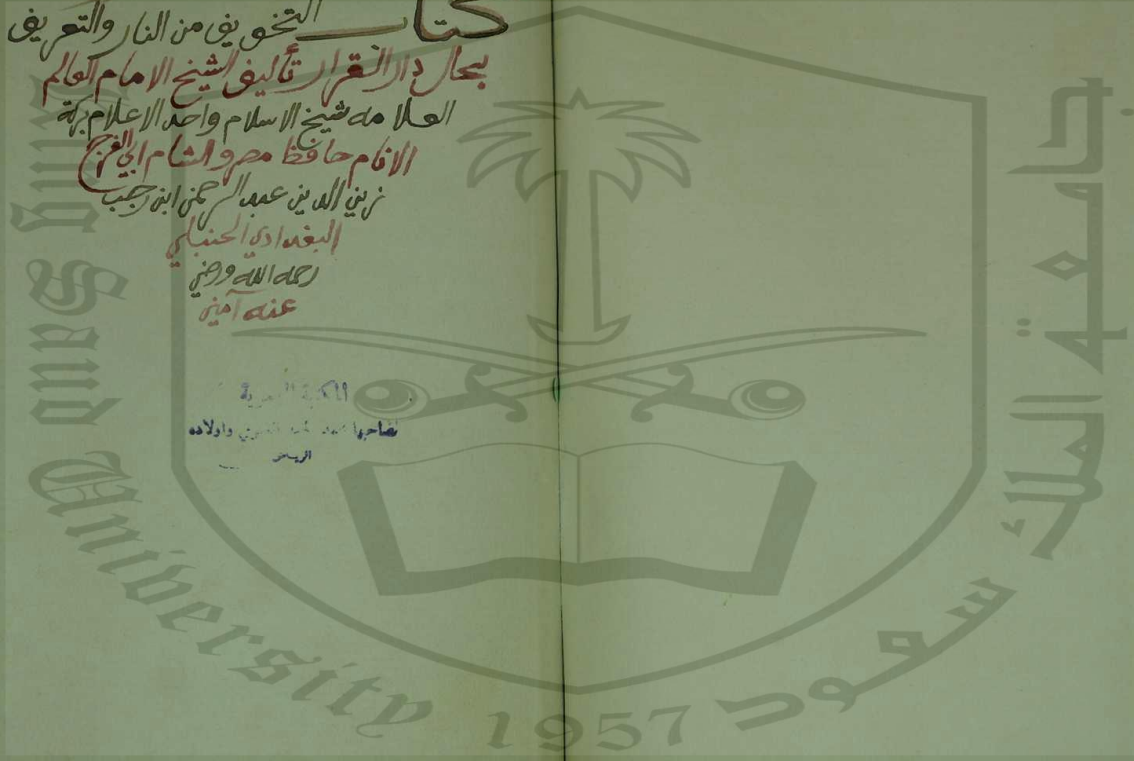 كتاب التخويف من النار والتعريف
بحال دار القرار تأليف الشيخ الامام العالم
العلامه شيخ الاسلام واحد الاعلام بركة
الانام حافظ مصر والشام ابي الفرج
زين الدين عبد الرحمن ابن رجب
البغدادي الحنبلي
رحمه الله ورضي
عنه آمين
المكتبة
لصاحبها واولاده
الرياض
جامعة الملك سعود
King Saud University
1957